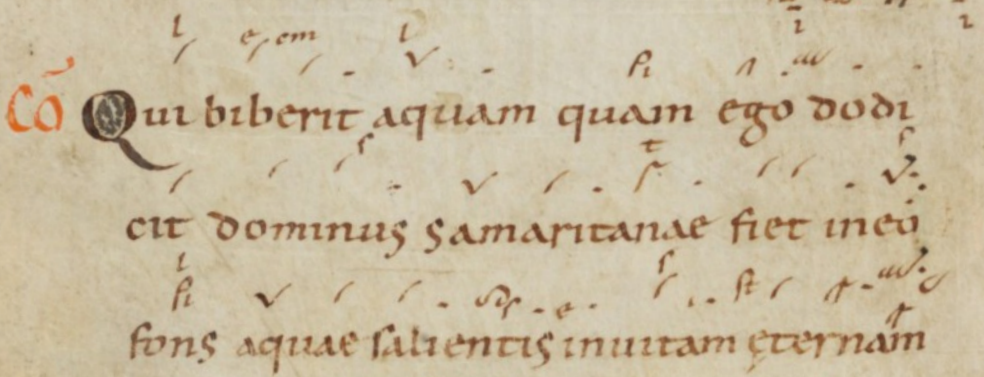 Cō Qui biberit aquam quam ego dodi
cit dominus samaritanae fiet in eo
fons aquae salientis in uitam ęternam